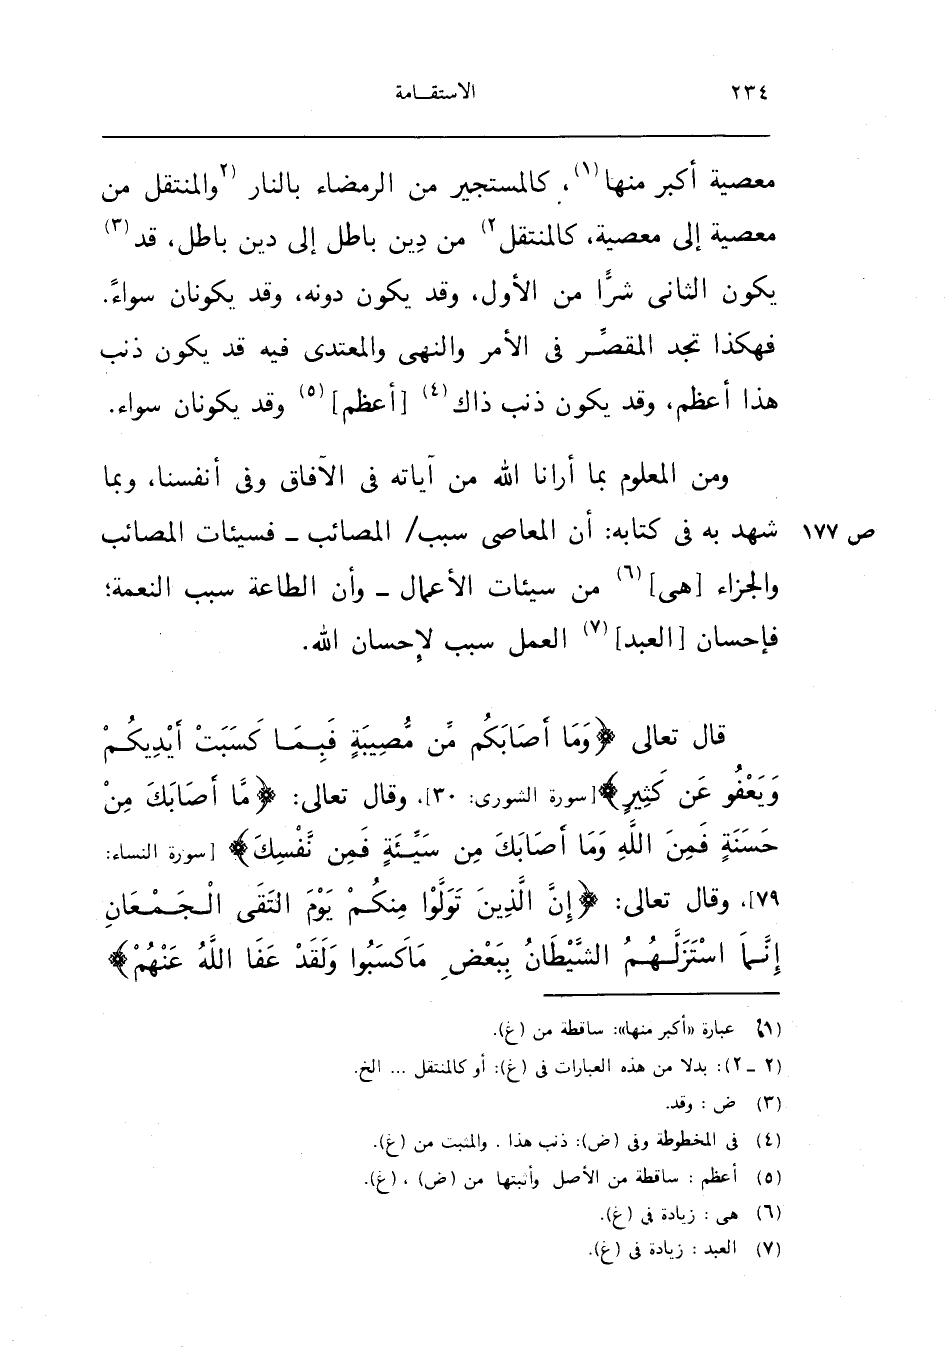 ٢٣٤ الاستقـامة
معصية أكبر منها(١)، كالمستجير من الرمضاء بالنار (٢والمنتقل من
معصية إلى معصية، كالمنتقل٢) من دِين باطل إلى دين باطل، قد(٣)
يكون الثانى شرًّا من الأول، وقد يكون دونه، وقد يكونان سواءً.
فهكذا تجد المقصِّـر فى الأمر والنهى والمعتدى فيه قد يكون ذنب
هذا أعظم، وقد يكون ذنب ذاك(٤) [أعظم](٥) وقد يكونان سواء.
ومن المعلوم بما أرانا الله من آياته فى الآفاق وفى أنفسنا، وبما
شهد به فى كتابه: أن المعاصى سبب/ المصائب ـ فسيئات المصائب ص ١٧٧
والجزاء [هى](٦) من سيئات الأعمال ـ وأن الطاعة سبب النعمة؛
فإحسان [العبد](٧) العمل سبب لإحسان الله.
قال تعالى ﴿وَمَا أَصَابَكُم مِّن مُّصِيبَةٍ فَبِـمَـا كَسَبَتْ أَيْدِيكُـمْ
وَيَعْفُو عَن كَثِيرٍ﴾[سورة الشورى: ٣٠]، وقال تعالى: ﴿مَّا أَصَابَكَ مِنْ
حَسَنَةٍ فَمِنَ اللَّهِ وَمَا أَصَابَكَ مِن سَيِّـئَةٍ فَمِن نَّفْسِكَ﴾ [سورة النساء:
٧٩]، وقال تعالى: ﴿إِنَّ الَّذِينَ تَوَلَّوْا مِنكُـمْ يَوْمَ التَقَى الْـجَـمْـعَانِ
إِنَّـمَا اسْتَزَلَّـهُـمُ الشَّيْطَانُ بِبَعْضِ مَاكَسَبُوا وَلَقَدْ عَفَا اللَّهُ عَنْهُمْ﴾
(١) عبارة «أكبر منها»: ساقطة من (غ).
(٢ ـ٢): بدلا من هذه العبارات فى (غ): أو كالمنتقل ... الخ.
(٣) ض : وقد.
(٤) فى المخطوطة وفى (ض): ذنب هذا . والمثبت من (غ).
(٥) أعظم : ساقطة من الأصل وأثبتها من (ض) ، (غ).
(٦) هى : زيادة فى (غ).
(٧) العبد : زيادة فى (غ).